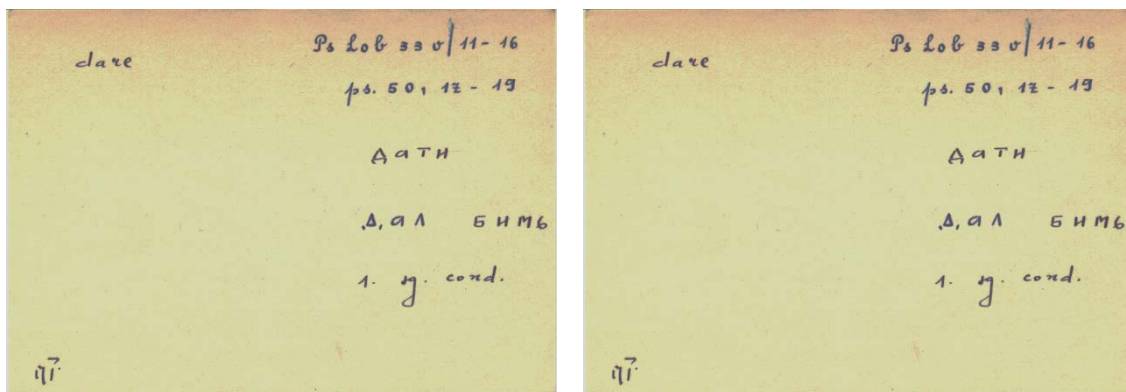 dare Ps Lob 33 v/11-16
ps. 50, 17 - 19
дати
д,ал бимь
1. sg. cond.
dare Ps Lob 33 v/11-16
ps. 50, 17 - 19
дати
д,ал бимь
1. sg. cond.